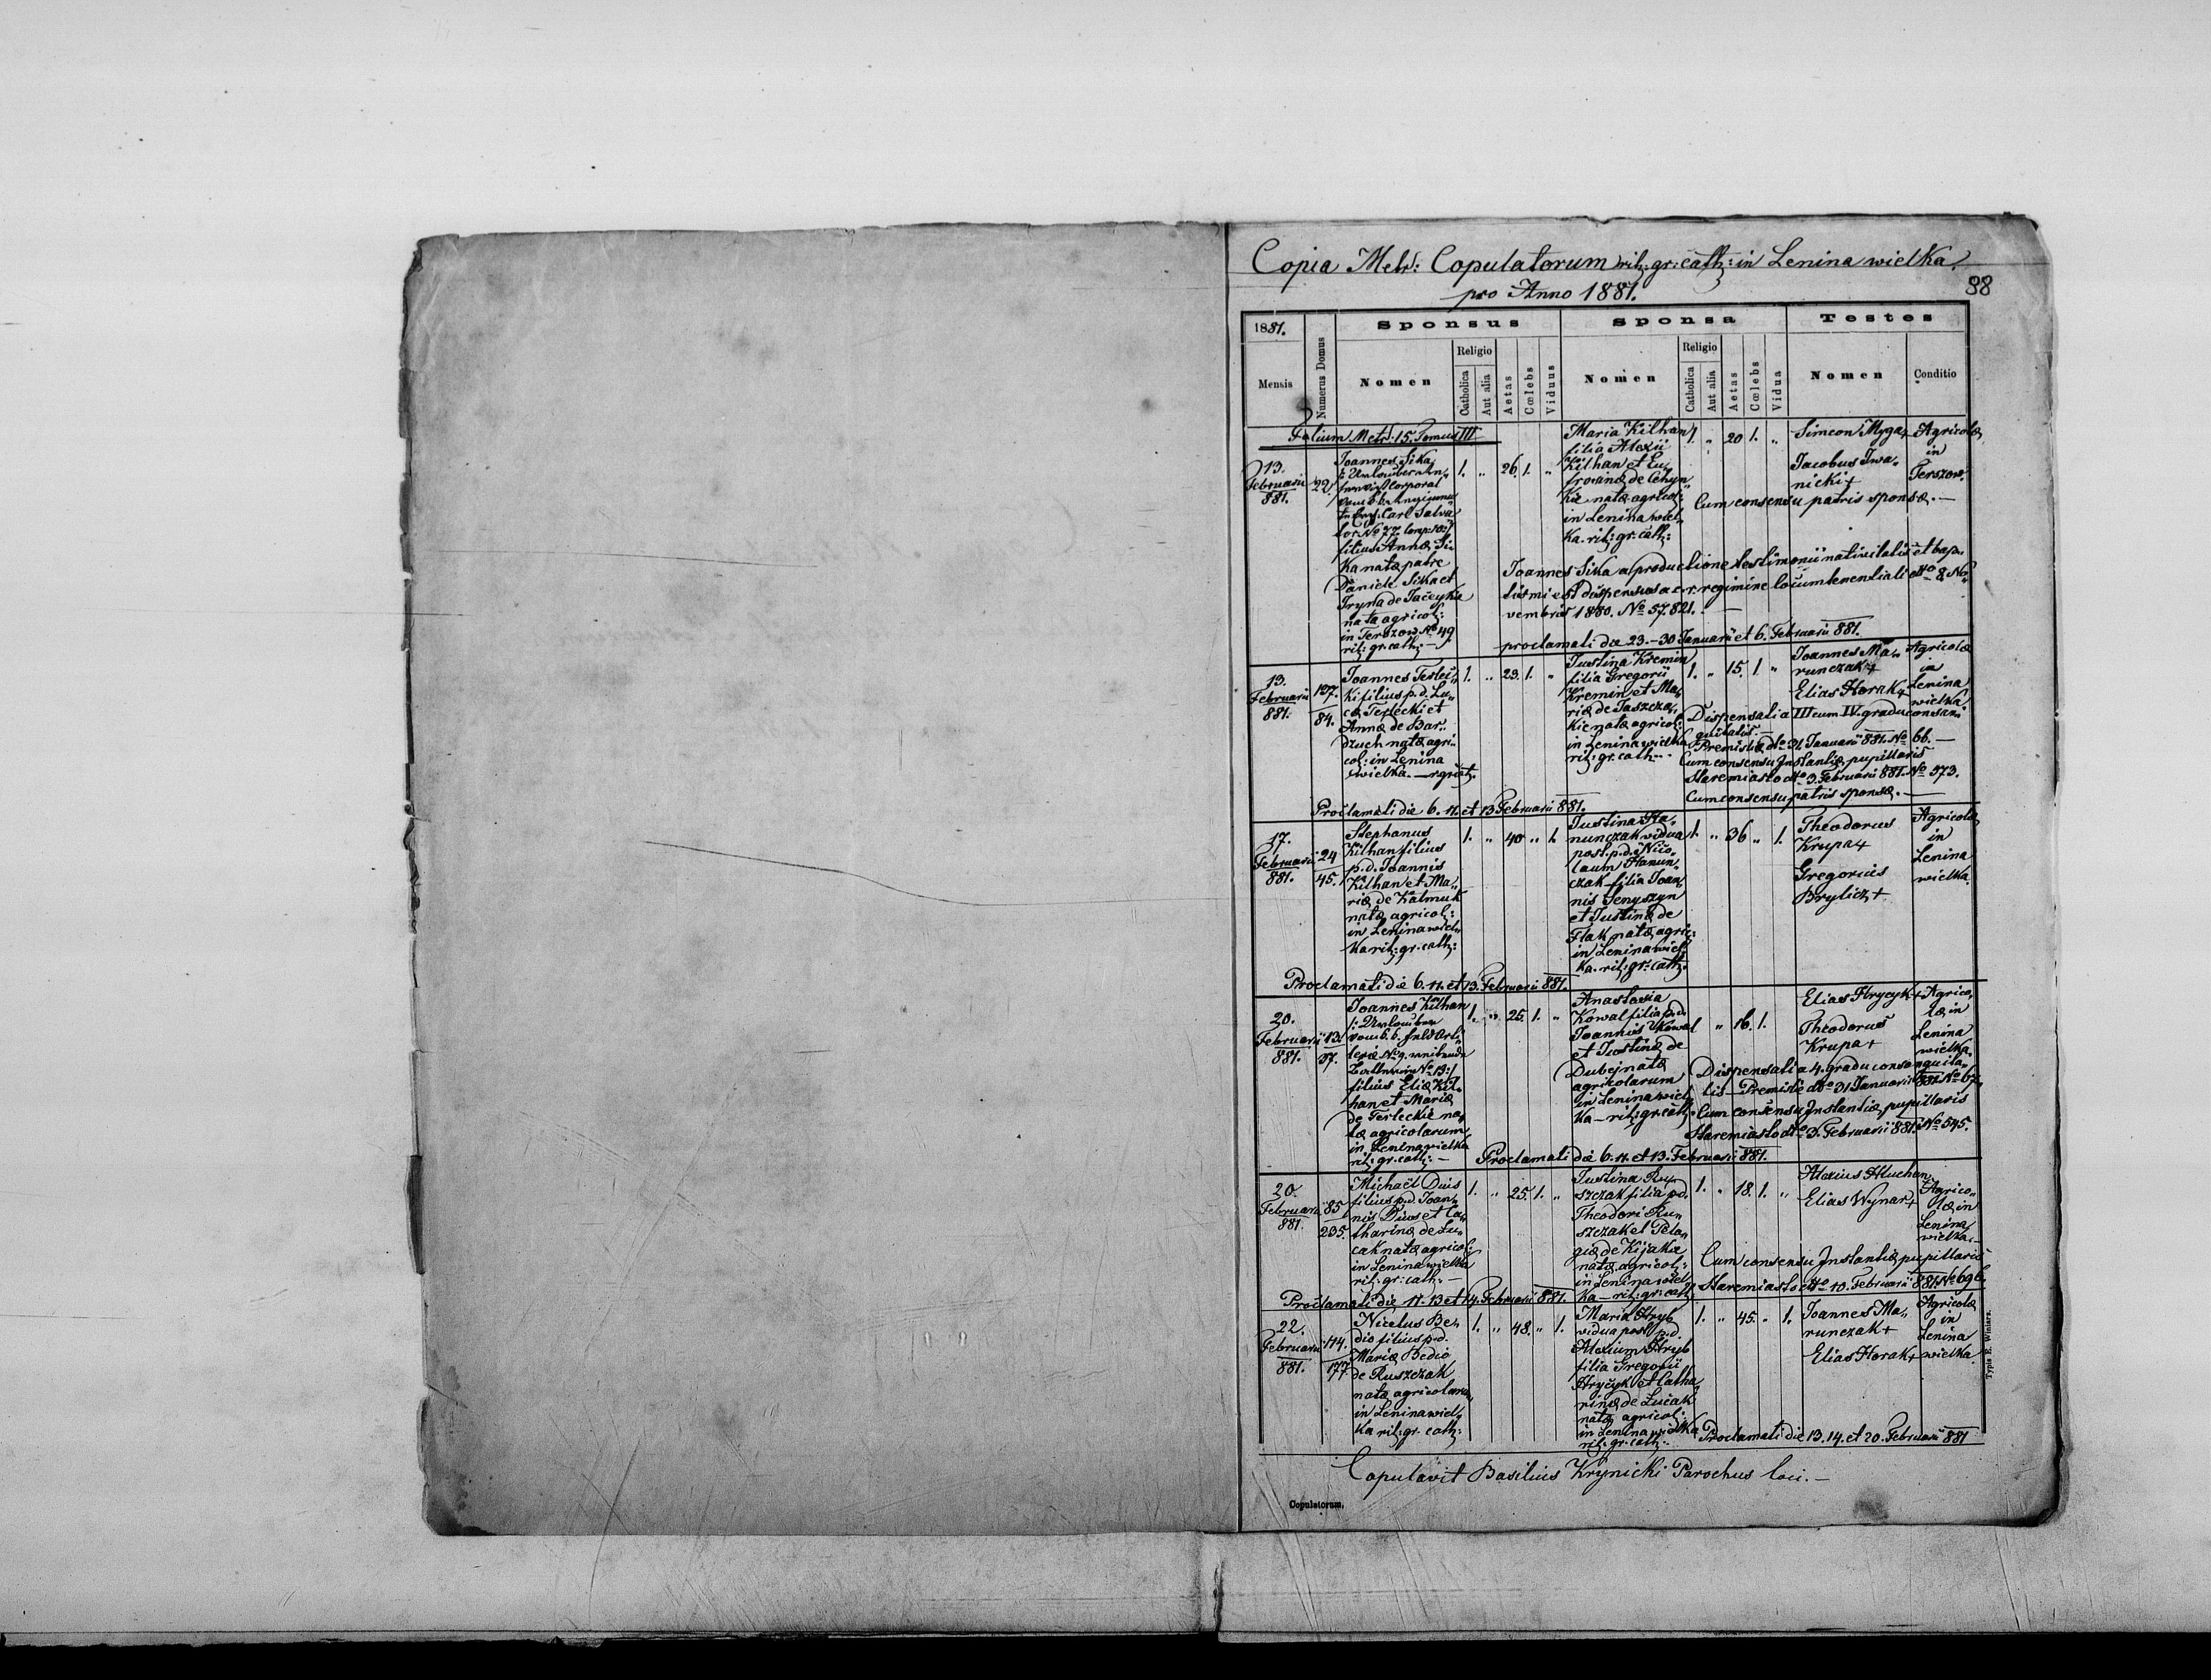 Copia Metr: Copulatorum rit: gr: cath: in Lenina wielka
pro Anno 1881.
88
1881.
Sponsus
Sponsa
Testes
Mensis
Numerus Domus
Nomen
Religio
Catholica
Aut alia
Aetas
Cœlebs
Viduus
Nomen
Religio
Catholica
Aut alia
Aetas
Cœlebs
Vidua
Nomen
Conditio
Folium Metr: 15. Tomus III
13.
Februarii
881.
22.
Joannes Sika
Corporal
Carl Salva
tor No 77.
filius Annæ Si
ka natæ patre
Daniele Sika et
Iryna de Jaceyko
nata agricol:
in Terszow No 49
rit: gr: cath: —
1. „ 26. 1. „
Maria Kilhan
filia Alexii
Kilhan et Eu„
frosinæ de
natæ agricol:
in Lenina wiel„
ka. rit: gr: cath:
1. „ 20 1. „
Simeon Myga +
Jacobus Iwa„
nicki +
Agricolæ
in
Terszow.
Cum consensu patris sponsæ. —
Joannes Sika a productione testimonii nativitatis et bap„
tismi est dispensus a c. r. regimine locumtenentiali dto 8. No„
vembris 1880. No 57.821. —
proclamati die 23.–30 Januarii et 6. Februarii 881.
13.
Februarii
881.
137.
84.
Joannes Terlec„
ki filius p. d. Lu„
cæ Terlecki et
Annæ de Bar„
dzuch natæ agri„
col: in Lenina
wielka. — r. gr. cat:
1. „ 23. 1. „
Justina Kremin
filia Gregorii
Kremin et Ma„
riæ de Jaszcza„
kie natæ agricol:
in Lenina wielka
rit: gr: cath: —
1. „ 15. 1. „
Joannes Ma„
runczak +
Elias Horak +
Agricolæ
in
Lenina
wielka
Dispensati a III cum IV. gradu consan„
guitatis. —
Premisliæ dto 31. Januarii 881. No 66. —
Cum consensu Instantiæ pupillaris
Staremiasto dto 3. Februarii 881. No 573.
Cum consensu patris sponsæ. —
Proclamati die 6. 11. et 13 Februarii 881.
17.
Februarii
881.
24
45.
Stephanus
Kilhan filius
p. d. Joannis
Kilhan et Ma„
riæ de Kalmuk
natæ agricol:
in Lenina wiel„
ka rit: gr: cath:
1. „ 40 „ 1.
Justina Ha„
nunczak vidua
post. p. d. Nico„
laum Hanun„
czak filia Joan„
nis Senyszyn
et Justinæ de
Flak natæ agric:
in Lenina wiel„
ka. rit: gr: cath:
1. „ 36 „ 1.
Theodorus
Krupa +
Gregorius
Brylicz +
Agricolæ
in
Lenina
wielka.
Proclamati die 6. 11. et 13. Februarii 881.
20.
Februarii
881.
13.
37.
Joannes Kilhan
filius Eliæ Kil„
han et Mariæ
de Terleckie na„
tæ agricolarum
in Lenina wielka
rit: gr: cath: —
1. „ 25. 1. „
Anastasia
Kowal filia p. d.
Joannis Kowal
et Justinæ de
Dubej natæ
agricolarum
in Lenina wiel„
ka — rit: gr: cath:
„ 16. 1.
Elias Hrycyk +
Theodorus
Krupa +
Agrico„
læ in
Lenina
wielka.
Dispensati a 4. gradu consanguita„
tis — Premisliæ dto 31 Januarii 881. No 67.
Cum consensu Instantiæ pupillaris
Staremiasto dto 3. Februarii 881. No 545.
Proclamati die 6. 11. et 13. Februarii 881.
20.
Februarii
881.
85
235.
Michaël Duis
filius p. d. Joan„
nis Duis et Ca„
tharinæ de Lu„
cak natæ agricol:
in Lenina wielka
rit: gr: cath: —
1. „ 25. 1. „
Justina Ru„
szczak filia p. d.
Theodori Ru„
szczak et Pela„
giæ de Kijakie
natæ agricol:
in Lenina wiel„
ka — rit: gr: cath:
1. „ 18. 1. „
Alexius Hluchan
Elias Wynar +
Agrico„
læ in
Lenina
wielka. —
Cum consensu Instantiæ pupillaris
Staremiasto dto 10. Februarii 881. No 696.
Proclamati die 11. 13 et 14. Februarii 881.
22.
Februarii
881.
114.
177.
Nicetus Be„
dio filius p. d.
Mariæ Bedio
de Ruszczak
natæ agricolarum
in Lenina wiel„
ka rit: gr. cath:
1. „ 48. „ 1.
Maria Hryb
vidua post p. d.
Alexium Hryb
filia Gregorii
Hrycyk et Catha„
rinæ de Lucak
natæ agricol:
in Lenina wielka
rit: gr: cath:
1. „ 45. „ 1.
Joannes Ma„
runczak +
Elias Horak +
Agricolæ
in
Lenina
wielka
Proclamati die 13. 14. et 20. Februarii 881
Copulavit Basilius Krynicki Parochus loci. —
Copulatorum.
Typis E. Winiarz.